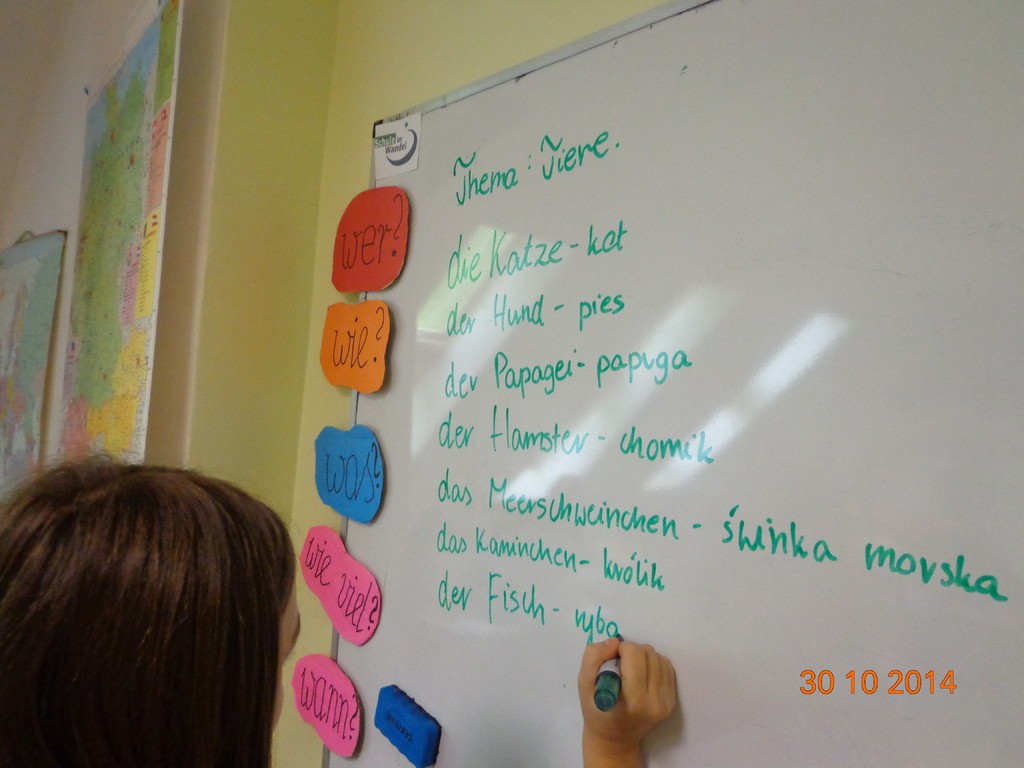 Schule im
Wandel
Thema: Tiere.
die Katze - kot
der Hund - pies
der Papagei - papuga
der Hamster - chomik
das Meerschweinchen - świnka morska
das Kaninchen - królik
der Fisch - ryba
wer?
wie?
was?
wie viel?
wann?
30 10 2014